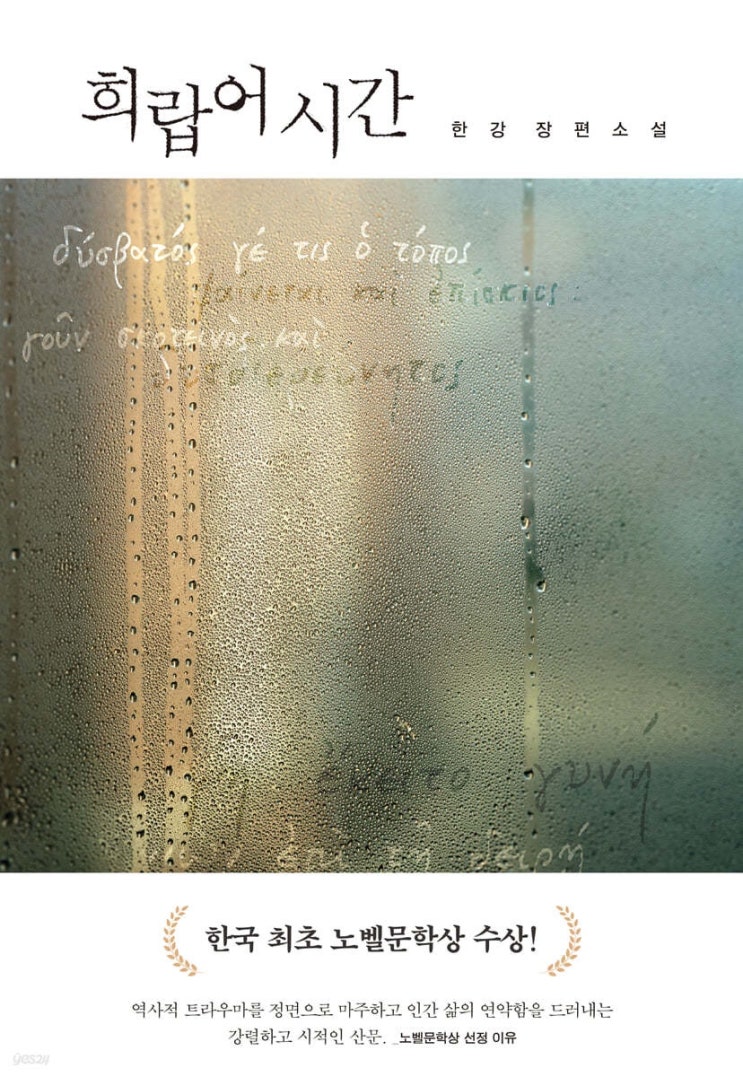 희랍어 시간
한강 장편소설
δύσβατός γέ τις ὁ τόπος
φαίνεται καὶ ἐπίσκιος·
γοῦν σκοτεινὸς καὶ
ἔκειτο γυνή
ἐπὶ τῇ δειρῇ
한국 최초 노벨문학상 수상!
역사적 트라우마를 정면으로 마주하고 인간 삶의 연약함을 드러내는
강렬하고 시적인 산문. _노벨문학상 선정 이유
yes24